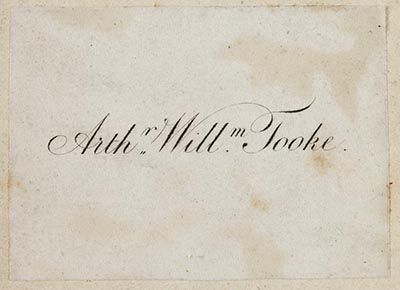 Arthʳ. Willᵐ. Tooke.